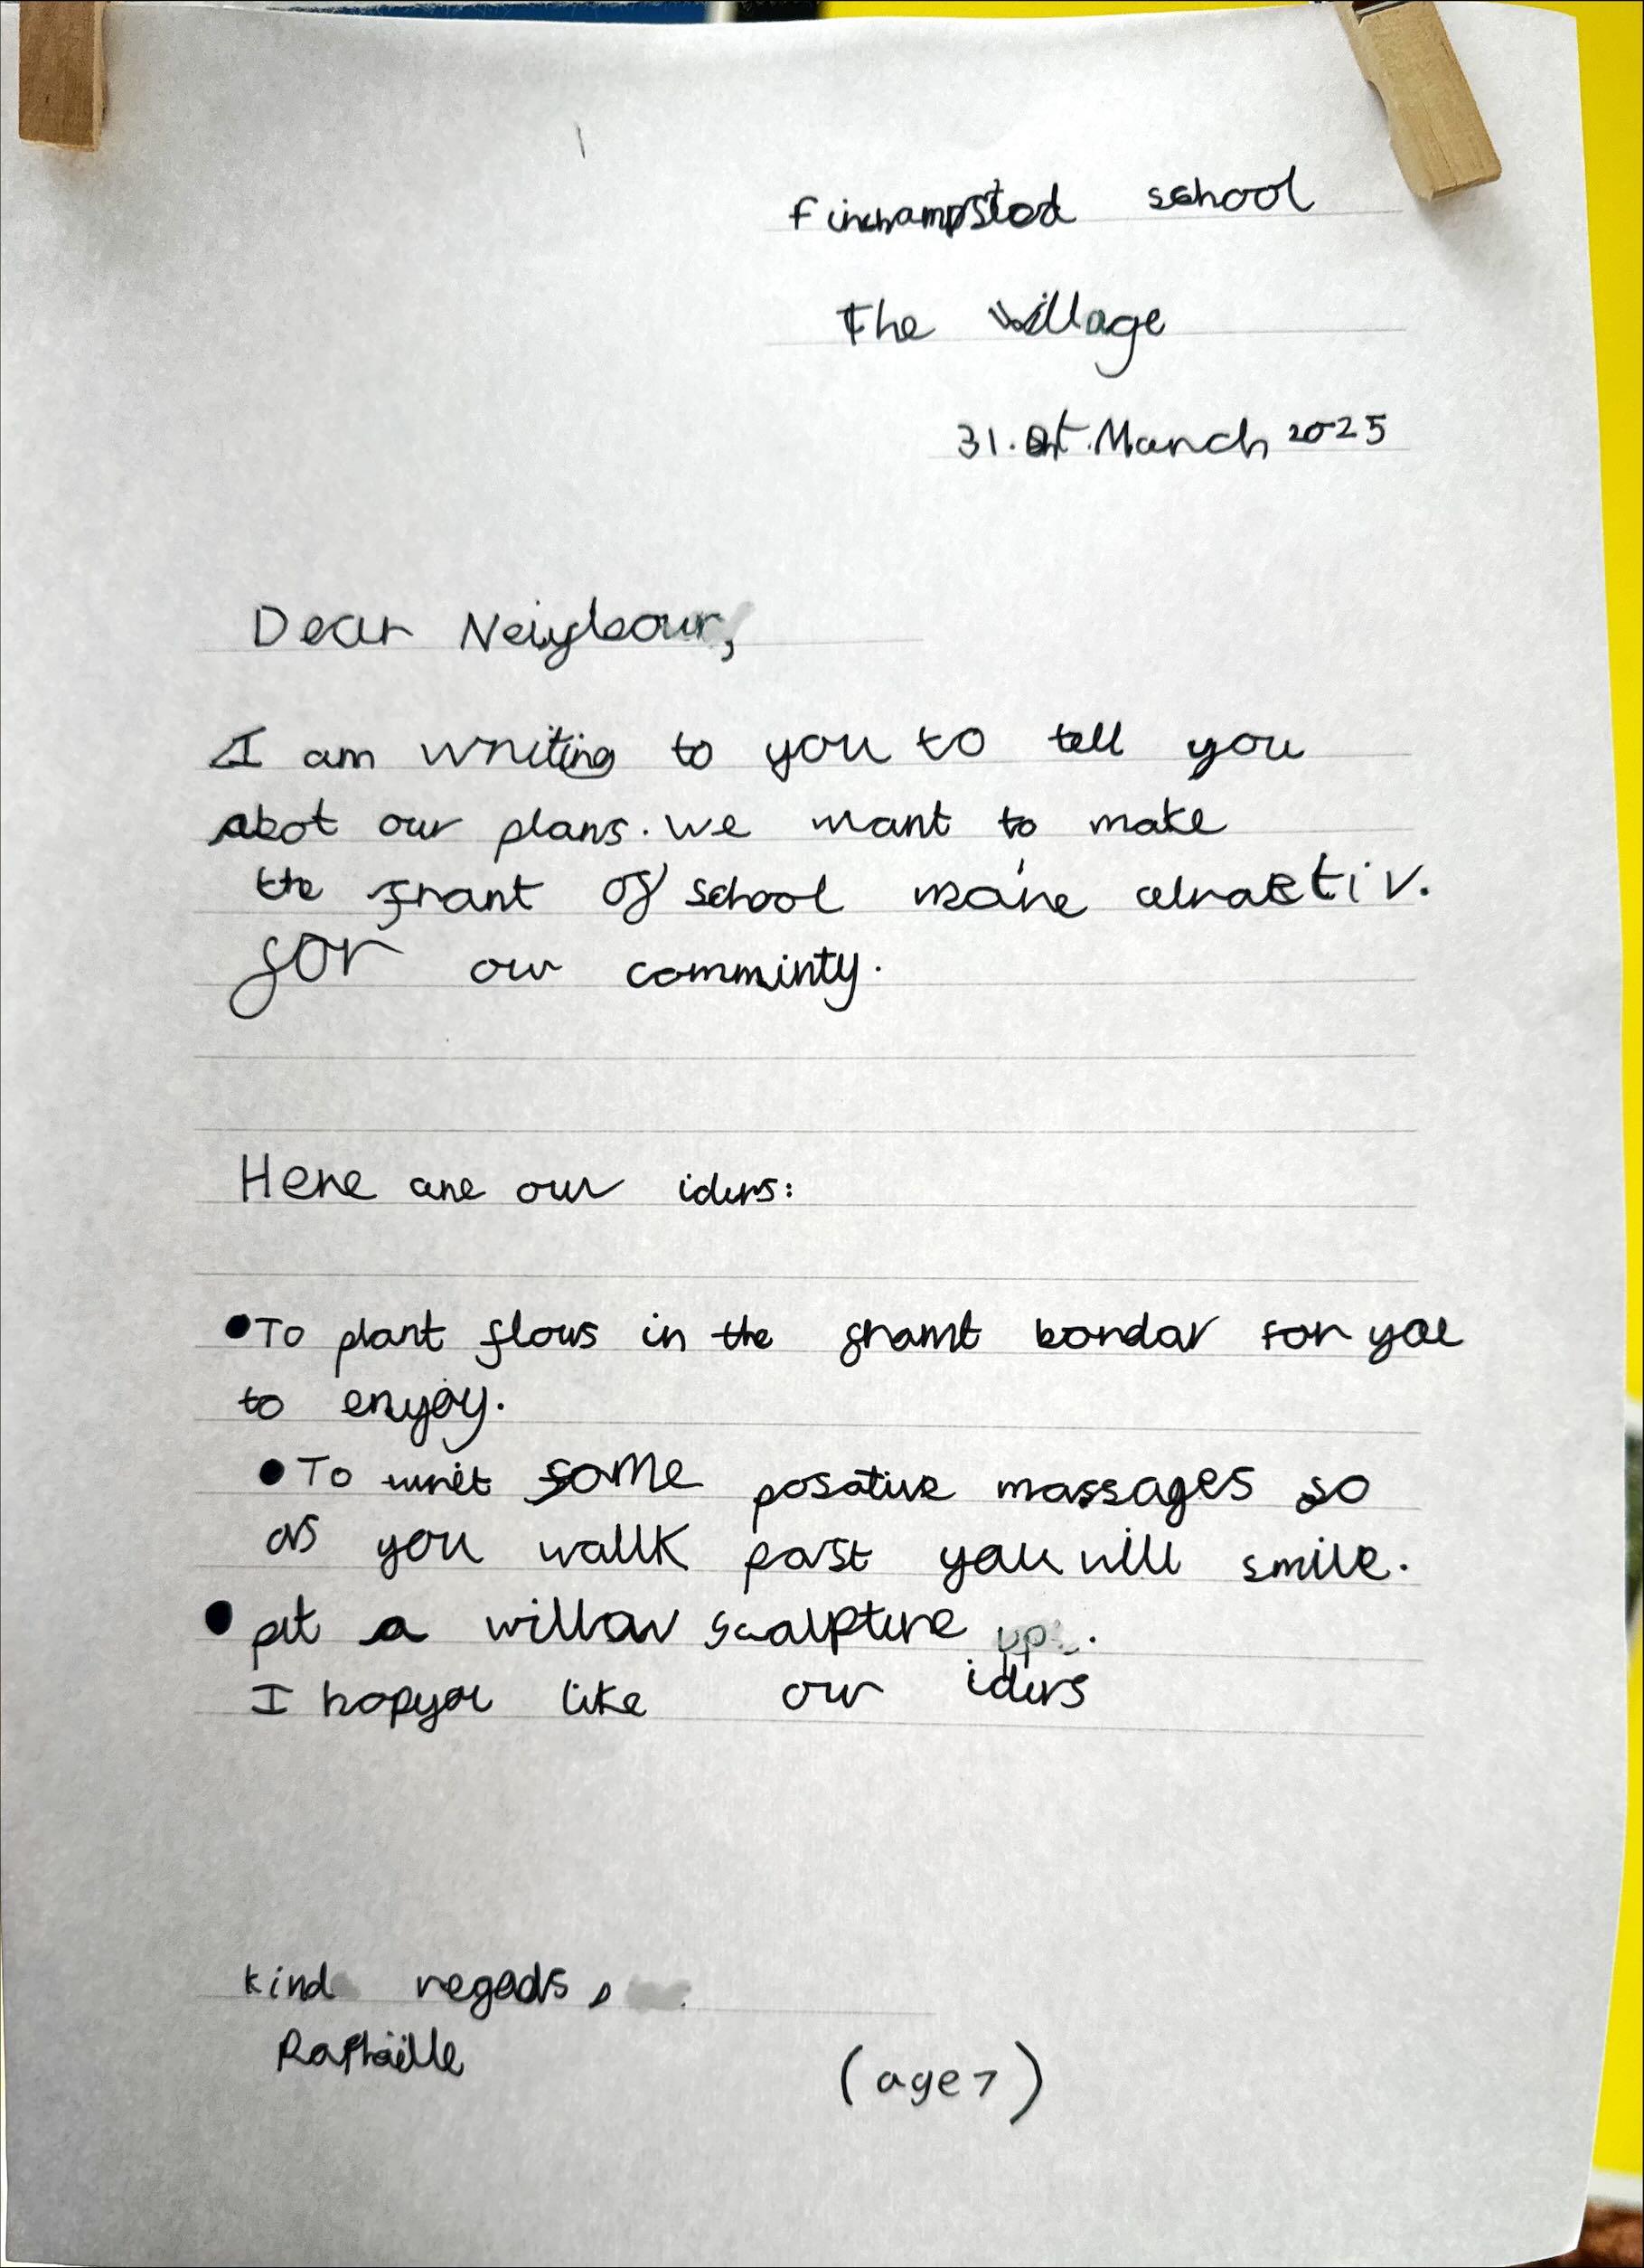 finchampsted school
The Village
31.st.March 2025
Dear Neigbour,
I am writing to you to tell you
abot our plans. we want to make
the frant of school more atractiv.
for our comminty.
Here are our iders:
•To plant flows in the framt bordar for you
to enyoy.
•To writ some posative massages so
as you wallk past you will smile.
• put a willow scalpture up.
I hop you like our iders
kind regads,
Raphaëlle
(age 7)